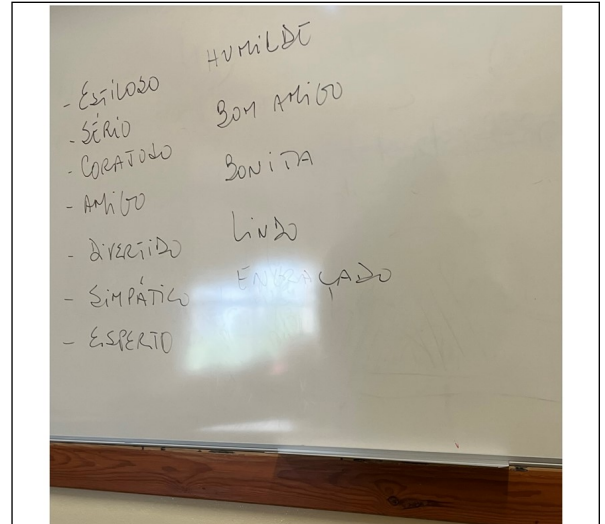 - ESTILOSO
- SÉRIO
- CORAJOSO
- AMIGO
- DIVERTIDO
- SIMPÁTICO
- ESPERTO
HUMILDE
BOM AMIGO
BONITA
LINDO
ENGRAÇADO